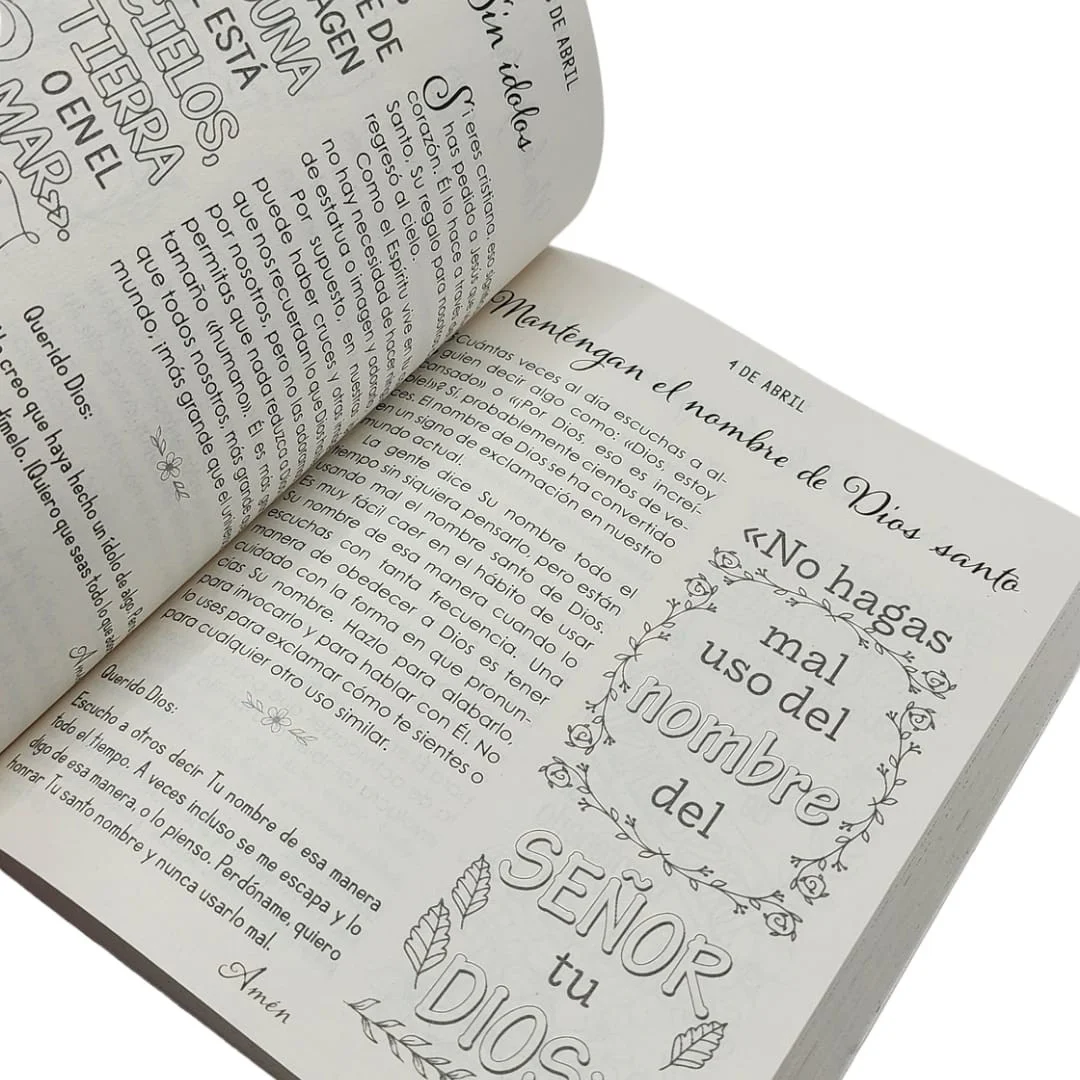 DE ABRIL
Sin ídolos
E DE
AGEN
UNA
E ESTÁ
CIELOS,
TIERRA
O EN EL
MAR»
Si eres cristiana, eso
has pedido a Jesús que
corazón. Él lo hace a
Santo, Su regalo para
regresó al cielo.
Como el Espíritu vive en
no hay necesidad de
de estatua o imagen y
Por supuesto, en nuestra
puede haber cruces y otras
que nos recuerdan lo que Dios
por nosotros, pero no las
permitas que nada reduzca a
tamaño «humano». Él es más
que todos nosotros, más grande
mundo, ¡más grande que el
Querido Dios:
creo que haya hecho un ídolo de algo.
¡Quiero que seas todo lo que
4 DE ABRIL
Mantengan el nombre de Dios santo
Cuántas veces al día escuchas a al-
guien decir algo como: «Dios, estoy
cansado» o «¡Por Dios, eso es increí-
ble!»? Sí, probablemente cientos de ve-
ces. El nombre de Dios se ha convertido
en un signo de exclamación en nuestro
mundo actual.
La gente dice Su nombre todo el
tiempo sin siquiera pensarlo, pero están
usando mal el nombre santo de Dios.
Es muy fácil caer en el hábito de usar
Su nombre de esa manera cuando lo
escuchas con tanta frecuencia. Una
manera de obedecer a Dios es tener
cuidado con la forma en que pronun-
cias Su nombre. Hazlo para alabarlo,
para invocarlo y para hablar con Él. No
lo uses para exclamar cómo te sientes o
para cualquier otro uso similar.
Querido Dios:
Escucho a otros decir Tu nombre de esa manera
todo el tiempo. A veces incluso se me escapa y lo
algo de esa manera, o lo pienso. Perdóname, quiero
honrar Tu santo nombre y nunca usarlo mal.
Amén
«No hagas
mal
uso del
nombre
del
SEÑOR
tu
DIOS